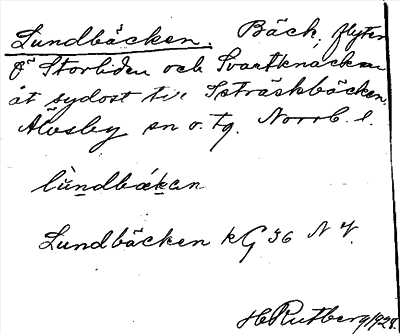 Lundbäcken. Bäck, flyter
fr. Storliden och Svartknäcken
åt sydost till Isträskbäcken.
Älvsby sn o. tg. Norrb. l.
lùndbäkan
Lundbäcken kG 36 N V.
H Rutberg 1928.